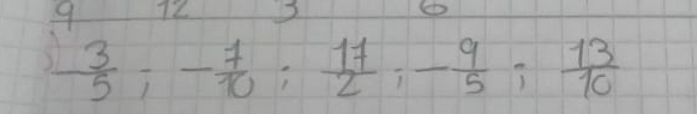 9 12 3 6
) -3/5 ; -7/10 ; 17/2 ; -9/5 ; 13/10